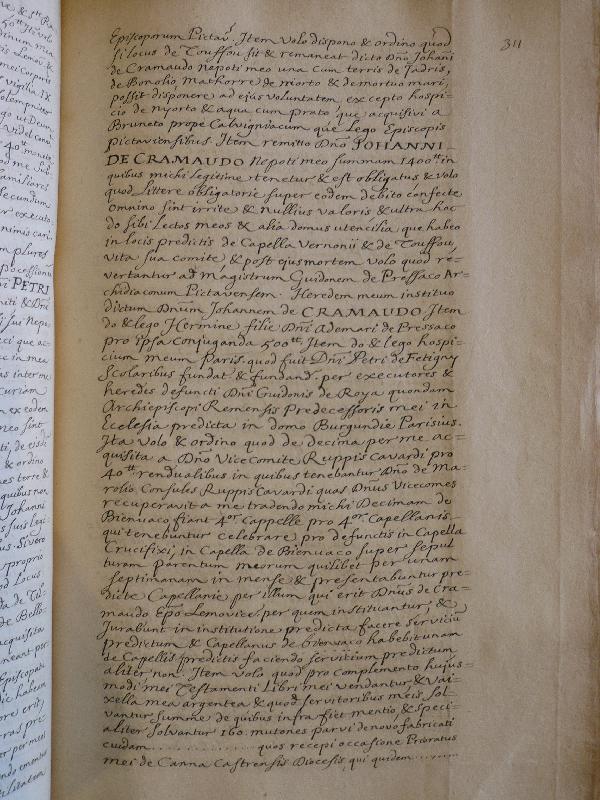 311
Episcoporum Pictav. Item volo dispono & ordino quod
si locus de Touffou sit & remaneat dicto Dño Johañi
de Cramaudo Nepoti meo una cum terris de Jadris,
de Bonolio Mathorre de Niorto & de mortuo mari,
possit disponere ad ejus voluntatem, excepto hospi=
cio de Nyorto & aqua cum prato que acquisivi a
Bruneto prope Calvigniacum que Lego Episcopis
Pictaviensibus. Item remitto Dño JOHANNI
DE CRAMAUDO Nepoti meo summam 1400tt in
quibus michi legitime tenetur & est obligatus & volo
quod littere obligatorie super eodem debito confecte
omnino sint irrite & nullius valoris & ultra hac
do sibi Lectos meos & alia domus utencilia que habeo
in locis predictis de Capella Vernonii & de Touffou,
vita sua comite & post ejus mortem volo quod re=
vertantur ad Magistrum Guidonem de Pressaco Ar=
chidiaconum Pictavensem. Heredem meum instituo
dictum Dnum Johannem de CRAMAUDO. Item
do & lego Hermine filie Dñi Ademari de Pressaco
pro ipsa conjuganda 500tt. Item do & lego hospi=
cium meum Paris. quod fuit Dñi Petri de Fetigny
Scolaribus fundat & fundand. per executores &
heredes defuncti Dñi Guidonis de Roya quondam
Archiepiscopi Remensis Predecessoris mei in
Ecclesia predicta in domo Burgundie Parisius.
Ita volo & ordino quod de decima per me ac=
quisita a Dño Vicecomite Ruppis Cavardi pro
40tt rendualibus in quibus tenebantur Dño de Ma=
rolio Consules Ruppis Cavardi quas Dnus Vicecomes
recuperavit a me tradendo michi Decimam de
Bienvaco, fiant 4or Cappelle pro 4or Capellanis
qui tenebuntur celebrare pro defunctis in Capella
Crucifixi, in Capella de Bienvaco super sepul
turam Parentum meorum quilibet per unam
septimanam in mense & presentabuntur pre=
dicte Capellanie per illum qui erit Dnus de Cra=
maudo Epõ Lemovice. per quem instituantur, &
Jurabunt in institutione predicta facere serviciũ
predictum & Capellanus de Bienvaco habebit unam
de Capellis predictis faciendo servitium predictum
aliter non. Item volo quod pro complemento hujus=
modi mei Testamenti Libri mei vendantur & Vai=
xella mea argentea & quod servitoribus meis sol=
vantur summe de quibus infra fiet mentio & speci=
aliter solvantur 160. mutones parvi de novo fabricati
cuidam ............... quos recepi occasione Prioratus
mei de Canna Castrensis Diocesis qui quidem .........